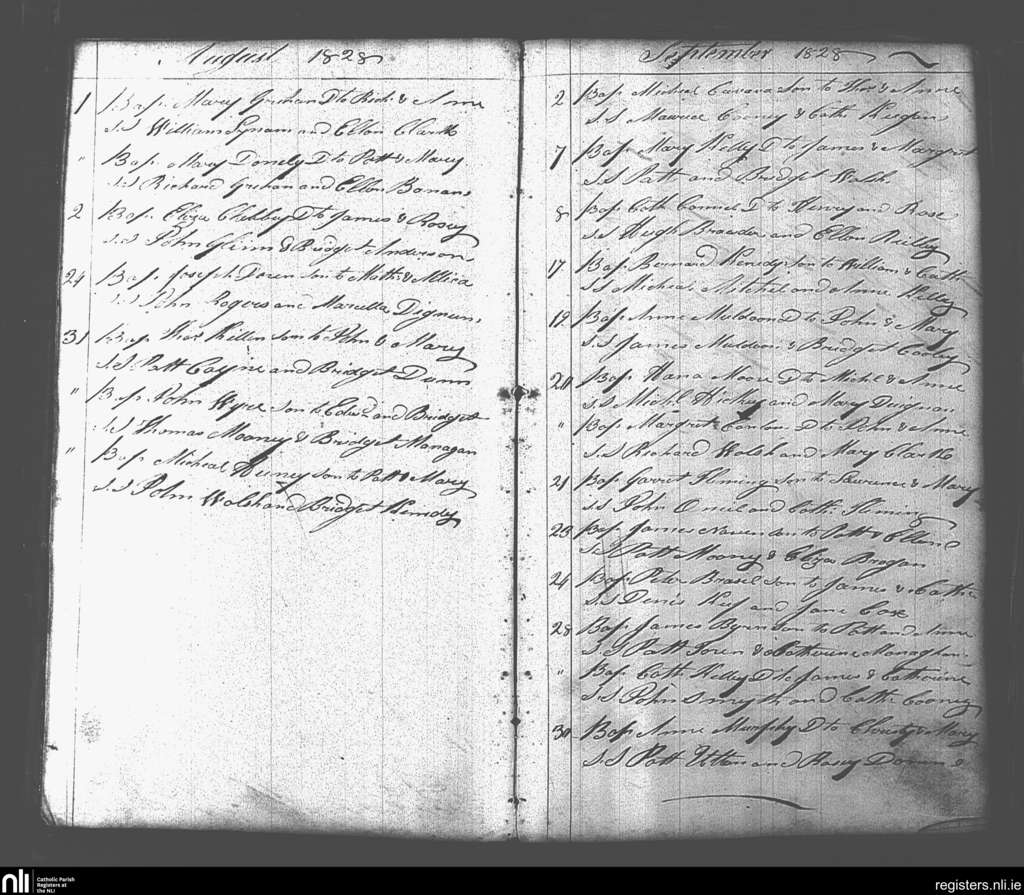 August 1828
1 Bap. Mary Grehan D to Rich. & Anne
S.S William Lynam and Ellon Clark
" Bap. Mary Donnely D to Patt & Mary
S.S Richard Grehan and Ellon Banan
2 Bap. Eliza D to James & Rosey
S.S John Glinn & Bridget Anderson
24 Bap. Joseph Doren Son to Math. & Allica
S.S John Rogers and Marcella Dignum
31 Bap. Thos Killen Son to John & Mary
S.S Patt Coyne and Bridget Dunn
" Bap. John Wyre Son to Edwd and Bridget
S.S Thomas Mooney & Bridget Managan
" Bap. Micheal Son to Patt & Mary
S.S John Walsh and Bridget Kenedy
September 1828
2 Bap. Micheal Cavana Son to Thos & Anne
S.S Maurice Cooney & Cath. Keegan
7 Bap. Mary Kelly D to James & Margret
S.S Patt and Bridget Walsh
8 Bap. Cath. D to Henry and Rose
S.S Hugh and Ellon Reilly
17 Bap. Bernard Kenedy Son to William & Cath.
S.S Micheal Mitchel and Anne Kelly
19 Bap. Anne Muldoon D to John & Mary
S.S James Muldoon & Bridget Cooley
Bap. Hana Moore D to Michl & Anne
S.S Michl Hickey and Mary Duignan
" Bap. Margret Conlon D to John & Anne
S.S Richard Walsh and Mary Clark
21 Bap. Garret Fleming Son to Lawrence & Mary
S.S John O neil and Cath. Fleming
23 Bap. James Son to Patt & Ellon
S.S Patt Mooney & Eliza Brogan
24 Bap. Peter Brasel Son to James & Cathe
S.S Denis Keef and Jane Cox
28 Bap. James Byrn Son to Patt and Anne
S.S Patt & Catherine Monaghan
" Bap. Cath. Kelly D to James & Catherine
S.S John Smyth and Cath. Cooney
30 Bap. Anne Murphy D to Christy & Mary
S.S Patt and Rosey
nli Catholic Parish
Registers at
the NLI
registers.nli.ie